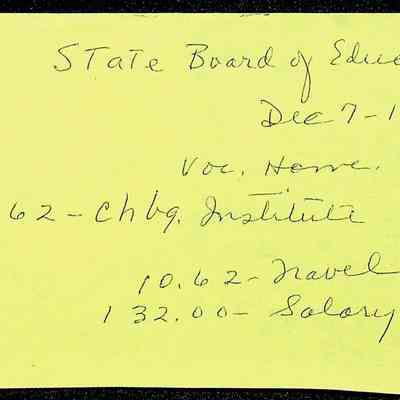 State Board of Educ
Dec 7-1
Voc. Home.
62 - Chbg. Institute
10.62 - Travel
132.00 - Salary